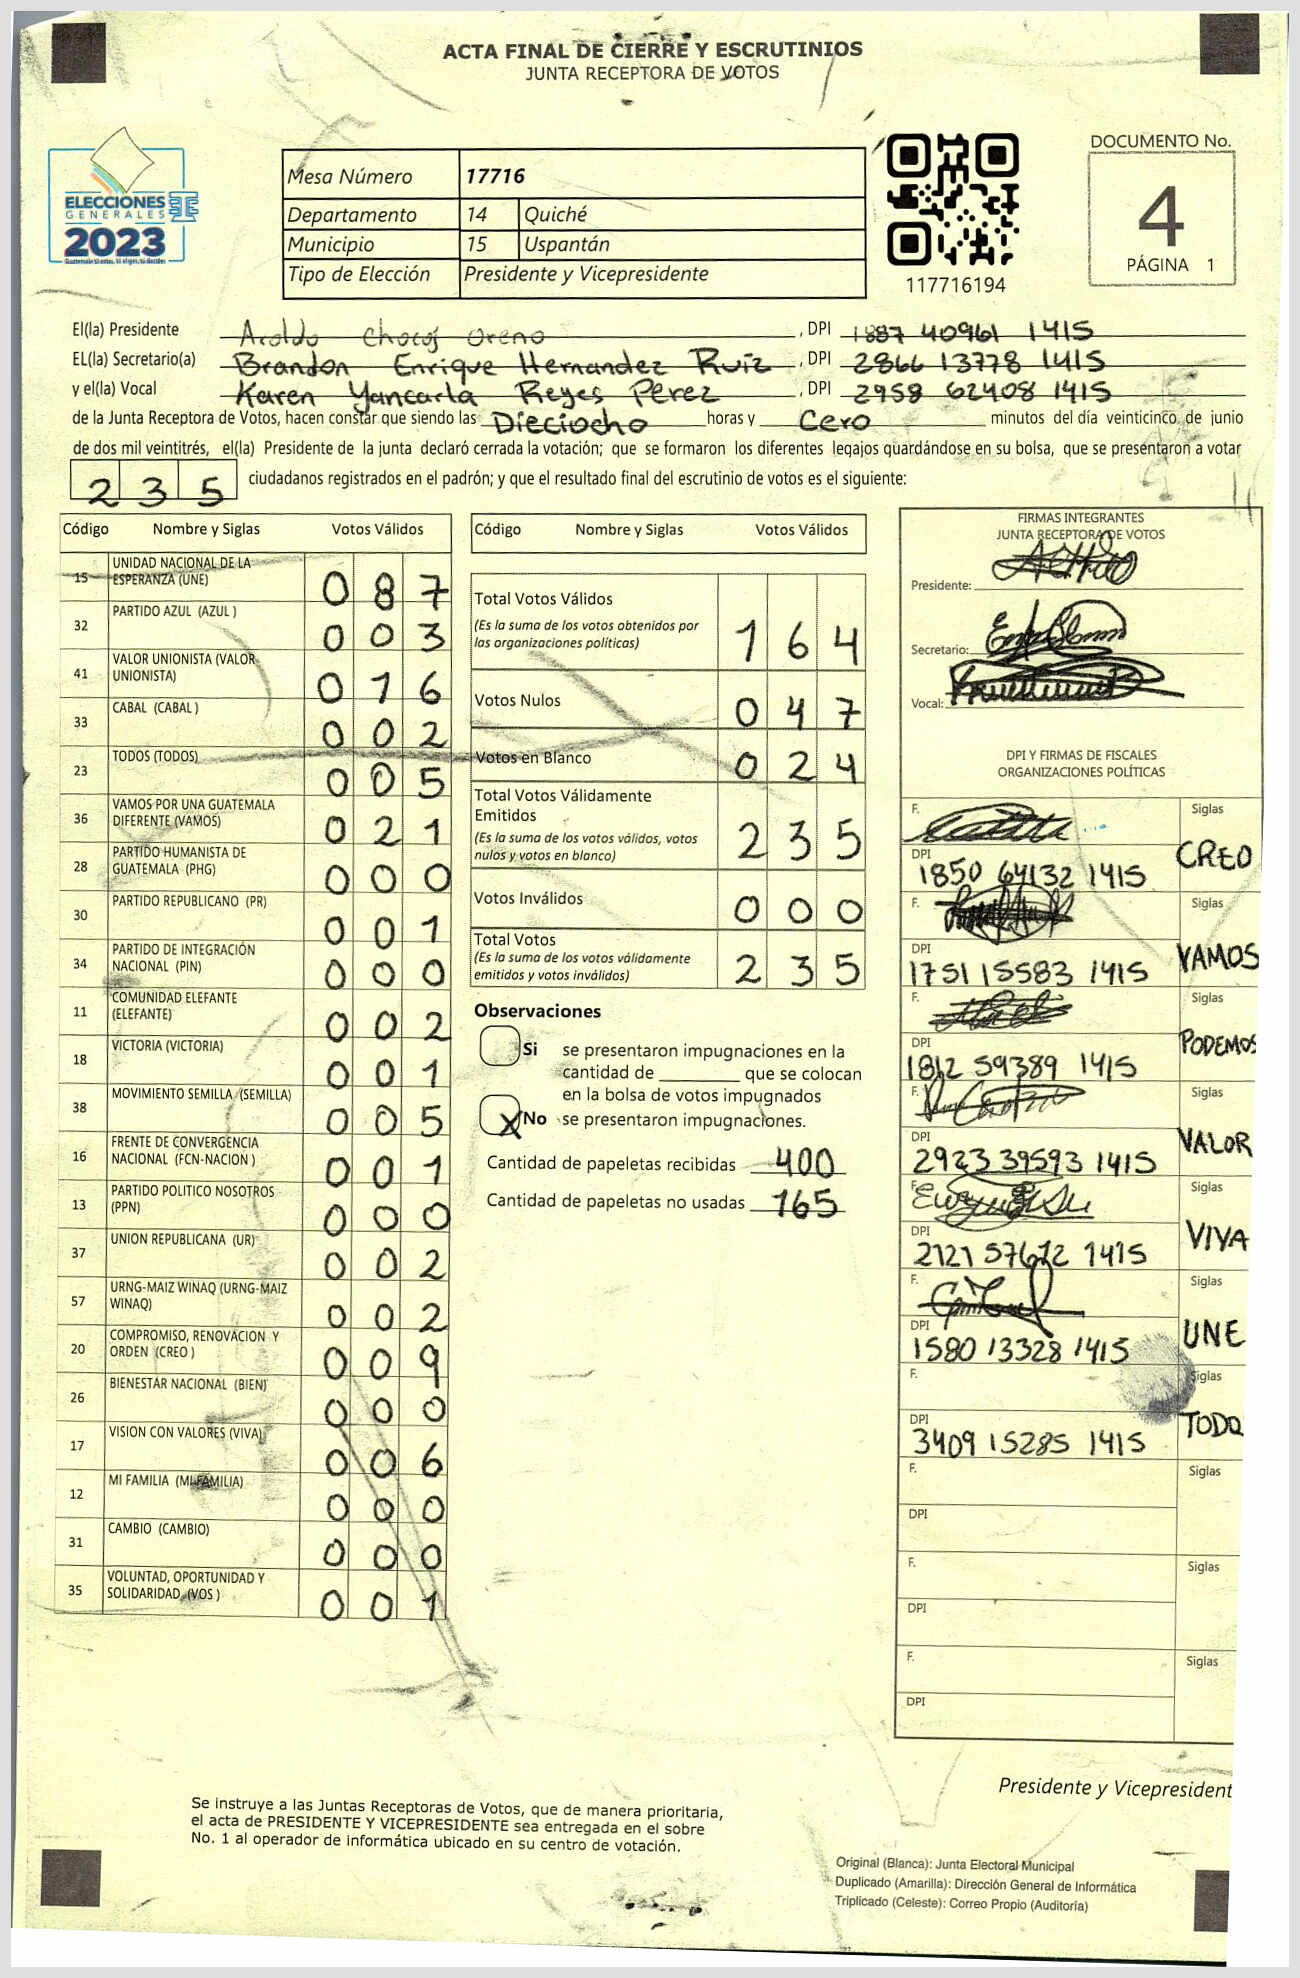 ACTA FINAL DE CIERRE Y ESCRUTINIOS
JUNTA RECEPTORA DE VOTOS
ELECCIONES
GENERALES
2023
Mesa Número 17716
Departamento 14 Quiché
Municipio 15 Uspantán
Tipo de Elección Presidente y Vicepresidente
117716194
DOCUMENTO No.
4
PÁGINA 1
El(la) Presidente Aroldo Chocoj Oreno, DPI 1887 40961 1415
EL(la) Secretario(a) Brandon Enrique Hernandez Ruiz, DPI 2866 13778 1415
y el(la) Vocal Karen Yancarla Reyes Perez, DPI 2958 62408 1415
de la Junta Receptora de Votos, hacen constar que siendo las Dieciocho horas y Cero minutos del día veinticinco de junio
de dos mil veintitrés, el(la) Presidente de la junta declaró cerrada la votación; que se formaron los diferentes legajos guardándose en su bolsa, que se presentaron a votar
235 ciudadanos registrados en el padrón; y que el resultado final del escrutinio de votos es el siguiente:
Código Nombre y Siglas Votos Válidos
15 UNIDAD NACIONAL DE LA ESPERANZA (UNE) 087
32 PARTIDO AZUL (AZUL ) 003
41 VALOR UNIONISTA (VALOR UNIONISTA) 016
33 CABAL (CABAL ) 002
23 TODOS (TODOS) 005
36 VAMOS POR UNA GUATEMALA DIFERENTE (VAMOS) 021
28 PARTIDO HUMANISTA DE GUATEMALA (PHG) 000
30 PARTIDO REPUBLICANO (PR) 001
34 PARTIDO DE INTEGRACIÓN NACIONAL (PIN) 000
11 COMUNIDAD ELEFANTE (ELEFANTE) 002
18 VICTORIA (VICTORIA) 001
38 MOVIMIENTO SEMILLA (SEMILLA) 005
16 FRENTE DE CONVERGENCIA NACIONAL (FCN-NACION ) 001
13 PARTIDO POLITICO NOSOTROS (PPN) 000
37 UNION REPUBLICANA (UR) 002
57 URNG-MAIZ WINAQ (URNG-MAIZ WINAQ) 002
20 COMPROMISO, RENOVACION Y ORDEN (CREO ) 009
26 BIENESTAR NACIONAL (BIEN) 000
17 VISION CON VALORES (VIVA) 006
12 MI FAMILIA (MI FAMILIA) 000
31 CAMBIO (CAMBIO) 000
35 VOLUNTAD, OPORTUNIDAD Y SOLIDARIDAD (VOS ) 001
Código Nombre y Siglas Votos Válidos
Total Votos Válidos 164
(Es la suma de los votos obtenidos por
las organizaciones políticas)
Votos Nulos 047
Votos en Blanco 024
Total Votos Válidamente
Emitidos 235
(Es la suma de los votos válidos, votos
nulos y votos en blanco)
Votos Inválidos 000
Total Votos 235
(Es la suma de los votos válidamente
emitidos y votos inválidos)
Observaciones
Si se presentaron impugnaciones en la
cantidad de ________ que se colocan
en la bolsa de votos impugnados
X No se presentaron impugnaciones.
Cantidad de papeletas recibidas 400
Cantidad de papeletas no usadas 165
FIRMAS INTEGRANTES
JUNTA RECEPTORA DE VOTOS
Presidente:
Secretario:
Vocal:
DPI Y FIRMAS DE FISCALES
ORGANIZACIONES POLÍTICAS
F. Siglas
DPI 1850 64132 1415 CREO
F. Siglas
DPI 1751 15583 1415 VAMOS
F. Siglas
DPI 1812 59389 1415 PODEMOS
F. Siglas
DPI 2923 39593 1415 VALOR
F. Siglas
DPI 2121 57672 1415 VIVA
F. Siglas
DPI 1580 13328 1415 UNE
F. Siglas
DPI 3409 15285 1415 TODO
F. Siglas
DPI
F. Siglas
DPI
F. Siglas
DPI
Presidente y Vicepresident
Se instruye a las Juntas Receptoras de Votos, que de manera prioritaria,
el acta de PRESIDENTE Y VICEPRESIDENTE sea entregada en el sobre
No. 1 al operador de informática ubicado en su centro de votación.
Original (Blanca): Junta Electoral Municipal
Duplicado (Amarilla): Dirección General de Informática
Triplicado (Celeste): Correo Propio (Auditoría)